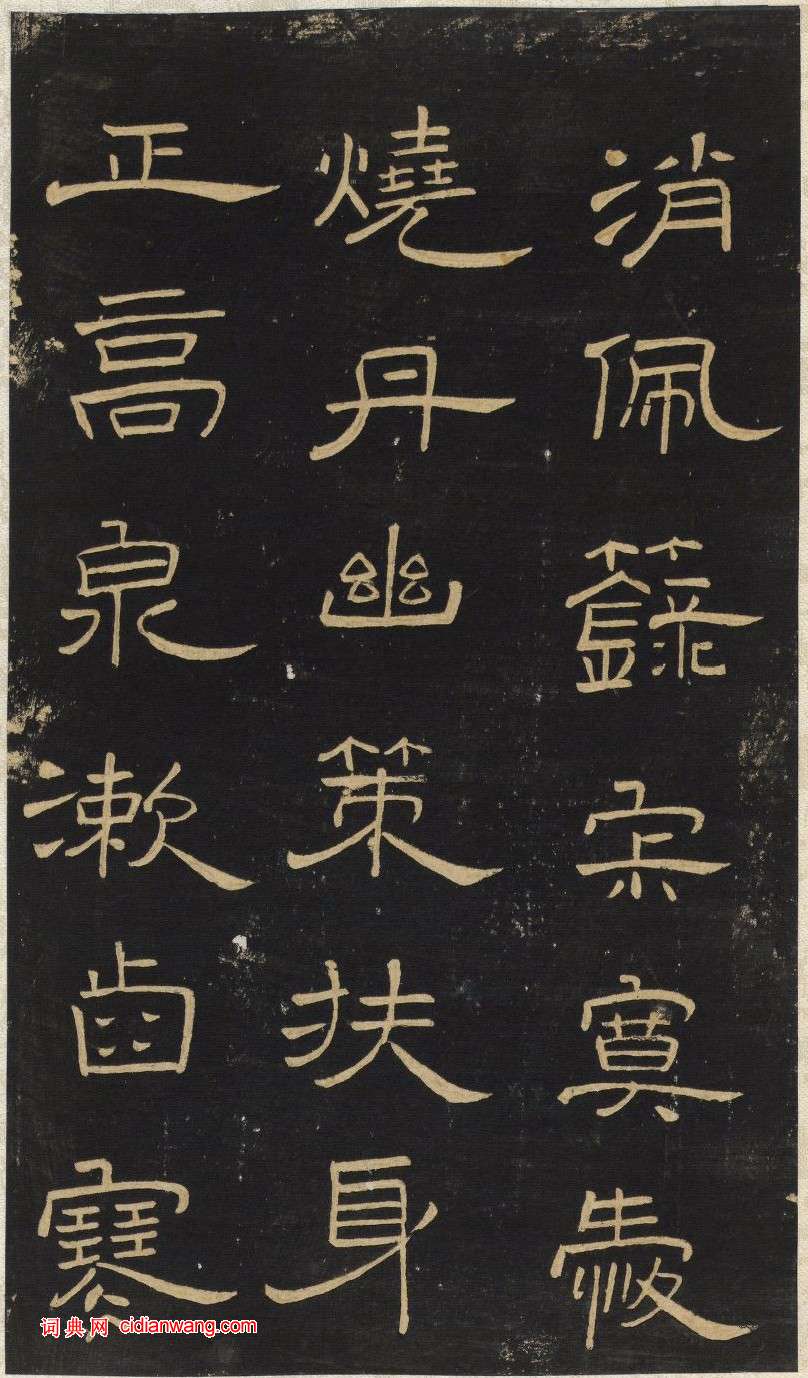 消佩籙寂寞愛
燒丹幽策扶身
正高泉漱齒寒
词典网 cidianwang.com